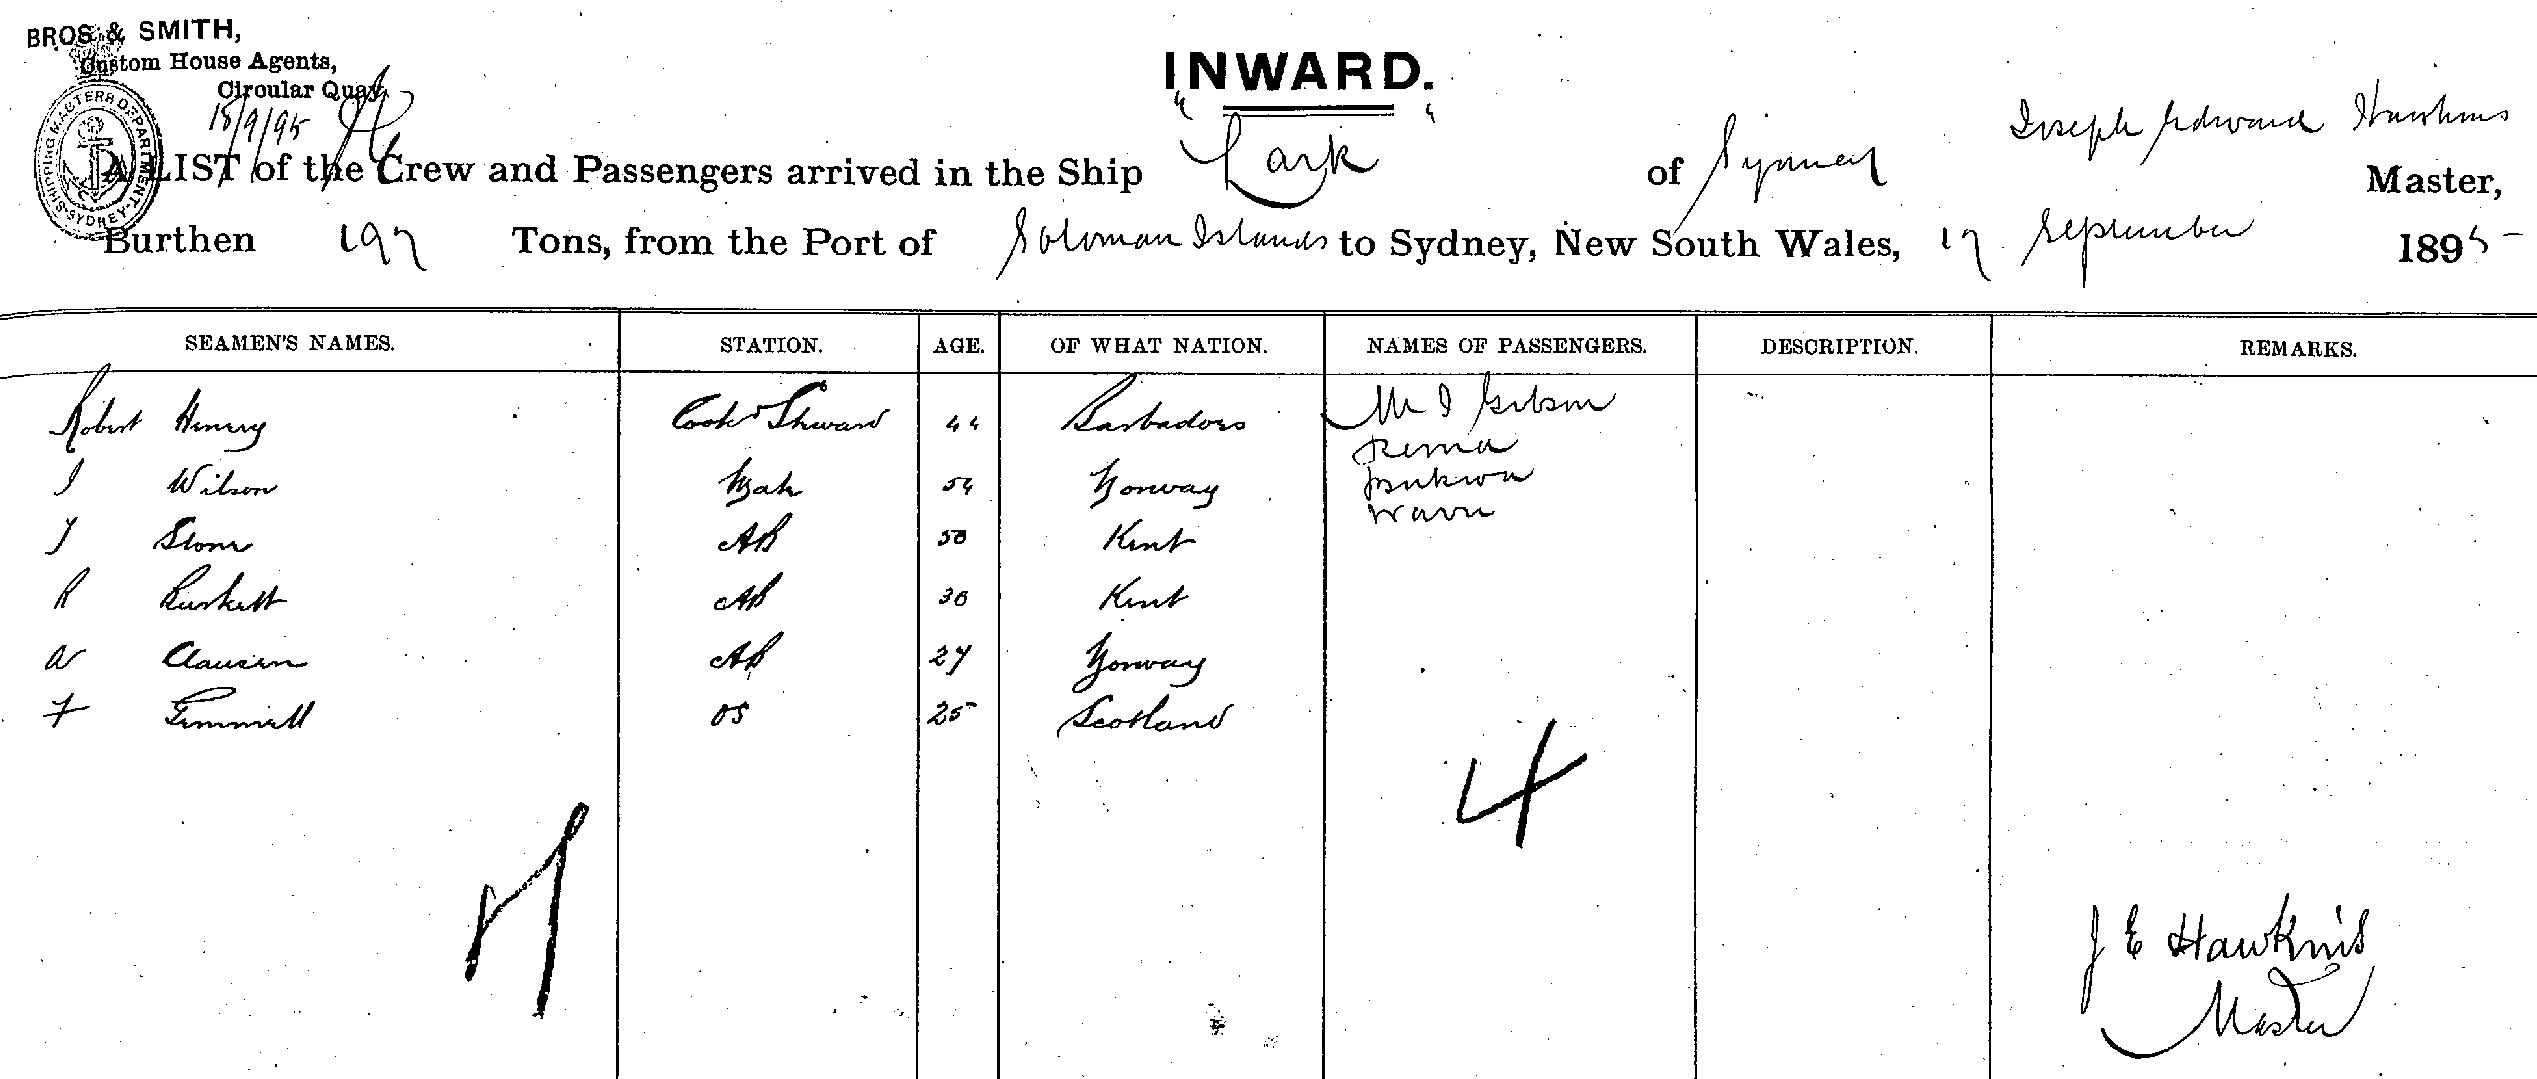 BROS. & SMITH,
Custom House Agents,
Circular Quay
18/9/95
SHIPPING MASTERS DEPARTMENT SYDNEY
INWARD.
A LIST of the Crew and Passengers arrived in the Ship "Lark" of Sydney Joseph Edward Hawkins Master,
Burthen 197 Tons, from the Port of Soloman Islands to Sydney, New South Wales, 17 September 1895
SEAMEN'S NAMES. STATION. AGE. OF WHAT NATION. NAMES OF PASSENGERS. DESCRIPTION. REMARKS.
Robert Henry Cook Steward 44 Barbadoes Mr J Gibson
Rema
J Wilson Mate 54 Norway
J Stone AB 50 Kent
R Burkett AB 38 Kent
W Clausen AB 27 Norway
F Gemmell OS 25 Scotland
4
7
J E Hawkins
Master